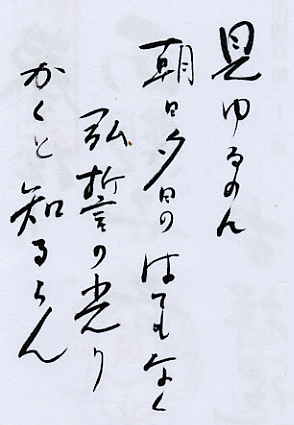 見ゆるのん
朝日夕日のはてもなく
弘誓の光り
かくと知るらん